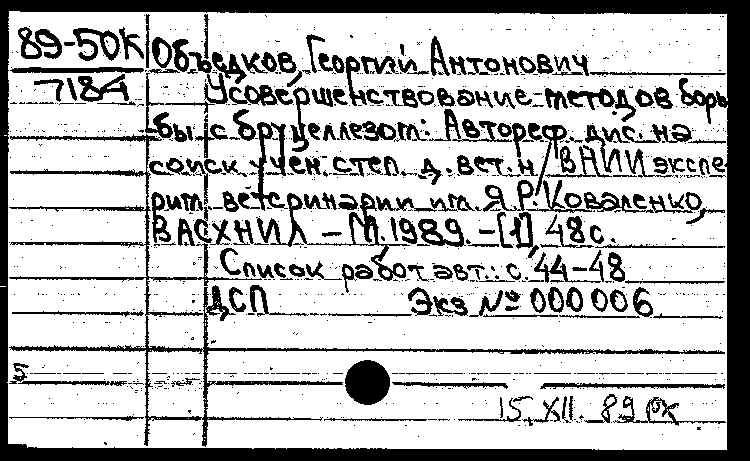 89-50К Объедков Георгий Антонович
7184 Усовершенствование методов борь-
бы с бруцеллезом: Автореф. дис. на
соиск учен. степ. д. вет. н / ВНИИ экспе-
рим. ветеринарии им. Я.Р. Коваленко,
ВАСХНИЛ – М. 1989. – [1], 48 с.
Список работ авт.: с. 44–48
ДСП Экз № 000006
5
15. XII. 89 РК